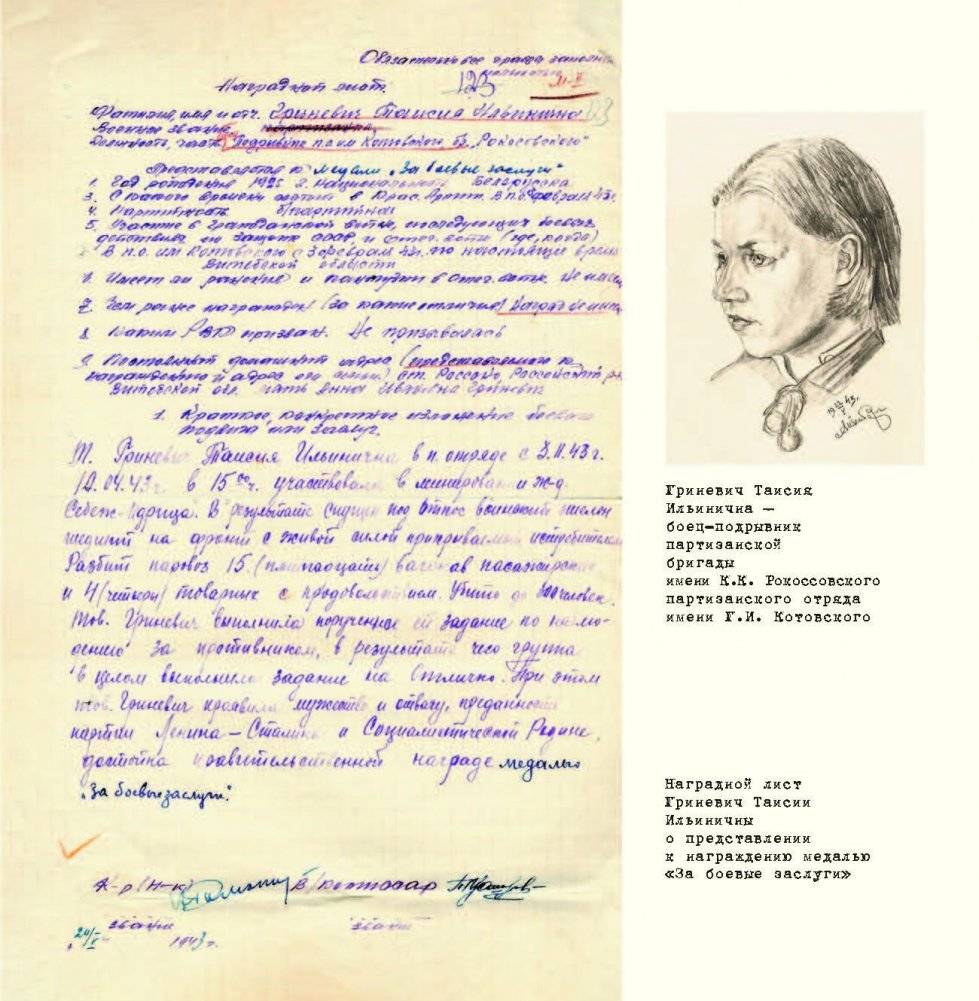 Обязательные графы заполн.
полностью
Наградной лист.
123
Фамилия, имя и отч. Гриневич Таисия Ильинична
Военное звание партизанка
Должность, часть Подрывник п.о им Котовского бр. "Рокосовского"
Представляется к медали "За боевые заслуги"
1. Год рождения 1925 2. Национальность Белоруска
3. С какого времени состоит в Крас. Армии. В п.о. февраля 43г.
4. Партийность б/партийная
5. Участие в гражданской войне, последующих боевых
действиях по защите СССР и отеч. войне (где, когда)
В п.о. им Котовского с 3 февраля 43г. по настоящее время
Витебской области
6. Имеет ли ранения и контузии в Отеч. войне. Не имеет
7. Чем ранее награжден (за какие отличия) Наград не имеет
8. Каким РВК призван. Не призывалась
9. Постоянный домашний адрес (представляемого к
награждению и адрес его семьи)
Витебской обл. мать Анна Ивановна Гриневич
1. Краткое, конкретное изложение боевого
подвига или заслуг.
Т. Гриневич Таисия Ильинична в п. отряде с 3.II.43г.
12.04.43г. в 15 00 ч. участвовала в минировании ж-д.
Себеж-Идрица. В результате спущен под откос воинский эшелон
шедший на фронт с живой силой прикрываемый истребителем
Разбит паровоз 15. (пятнадцать) вагонов пассажирских
и 4 (четыре) товарных с продовольствием. Убито до 300 человек.
Тов. Гриневич выполнила порученное ей задание по наблю-
дению за противником, в результате чего группа
в целом выполнила задание на Отлично. При этом
тов. Гриневич проявила мужество и отвагу, преданность
партии Ленина-Сталина и Социалистической Родине.
достойна правительственной награде медалью
"За боевые заслуги".
К-р (Н-к) В/комиссар
звание звание
"24/V" 1943 г.
19 43.
V
Гриневич Таисия
Ильинична —
боец-подрывник
партизанской
бригады
имени К.К. Рокоссовского
партизанского отряда
имени Г.И. Котовского
Наградной лист
Гриневич Таисии
Ильиничны
о представлении
к награждению медалью
«За боевые заслуги»